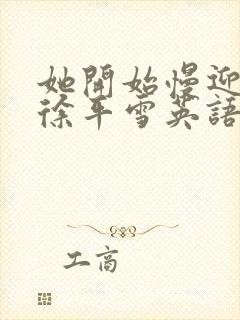 她開始慢迎
徐平雪英語
工商